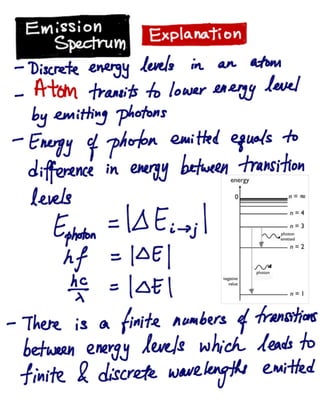 Emission
Spectrum
Explanation
- Discrete energy levels in an atom
- Atom transits to lower energy level
by emitting photons
- Energy of photon emitted equals to
difference in energy between transition
levels
E photon = |ΔE i→j|
hf = |ΔE|
hc/λ = |ΔE|
energy
0
n = ∞
n = 4
n = 3
photon
emitted
n = 2
photon
negative
value
n = 1
- There is a finite numbers of transitions
between energy levels which leads to
finite & discrete wavelengths emitted